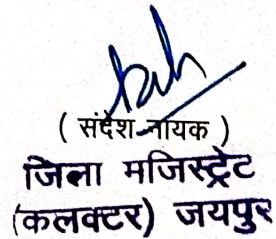 ( संदेश नायक )
जिला मजिस्ट्रेट
(कलक्टर) जयपुर